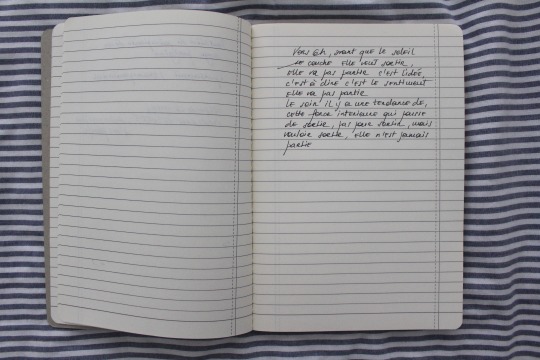 Vers 6h, avant que le soleil
se couche elle veut sortie,
elle va pas partie c'est l'idée,
c'est à dire c'est le sentiment
elle va pas partie
le soir il y a une tendance de,
cette force interieure qui pousse
de sortie, pas pour sortir, mais
vouloir sortie, elle n'est jamais
partie